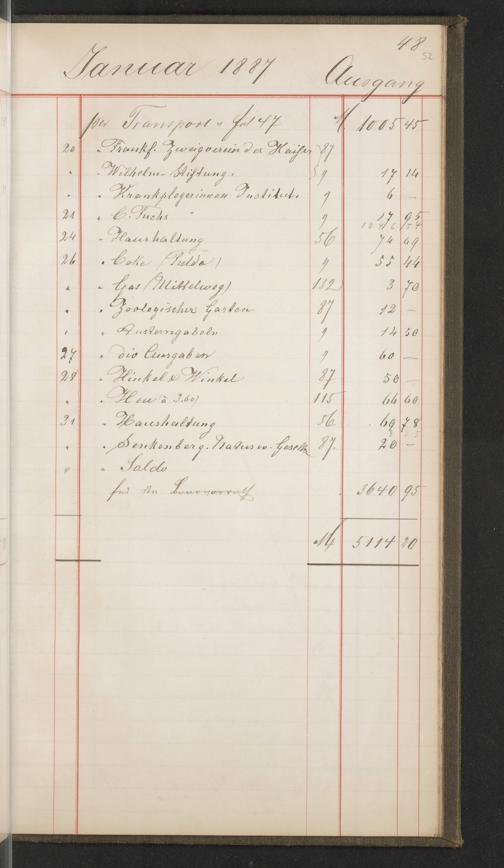 48
52
Januar 1887 Ausgang
per Transport v. fol 47 M 1005 45
20 " Frankf. Zweigverein der Kaiser
" " Wilhelm Stiftung. 87 9 17 14
" " Krankpflegerinnen Institut. 9 6 —
21 " C. Fuchs " 9 17 95
24 " Haushaltung 56 74 49
26 " Coke (Fulda) 9 55 44
" " Gas (Mittelweg) 112 3 70
" " Zoologischer Garten 87 12 —
" " Austerngabeln 9 14 50
27 " div Ausgaben 9 60 —
28 " Hinkel & Winkel 87 50 —
" " Heu (à 3.60) 115 66 60
31 " Haushaltung 56 69 78
" " Senkenberg. Natur w. Gesells 87. 20 —
" " Saldo
3640 95
M 5114 20